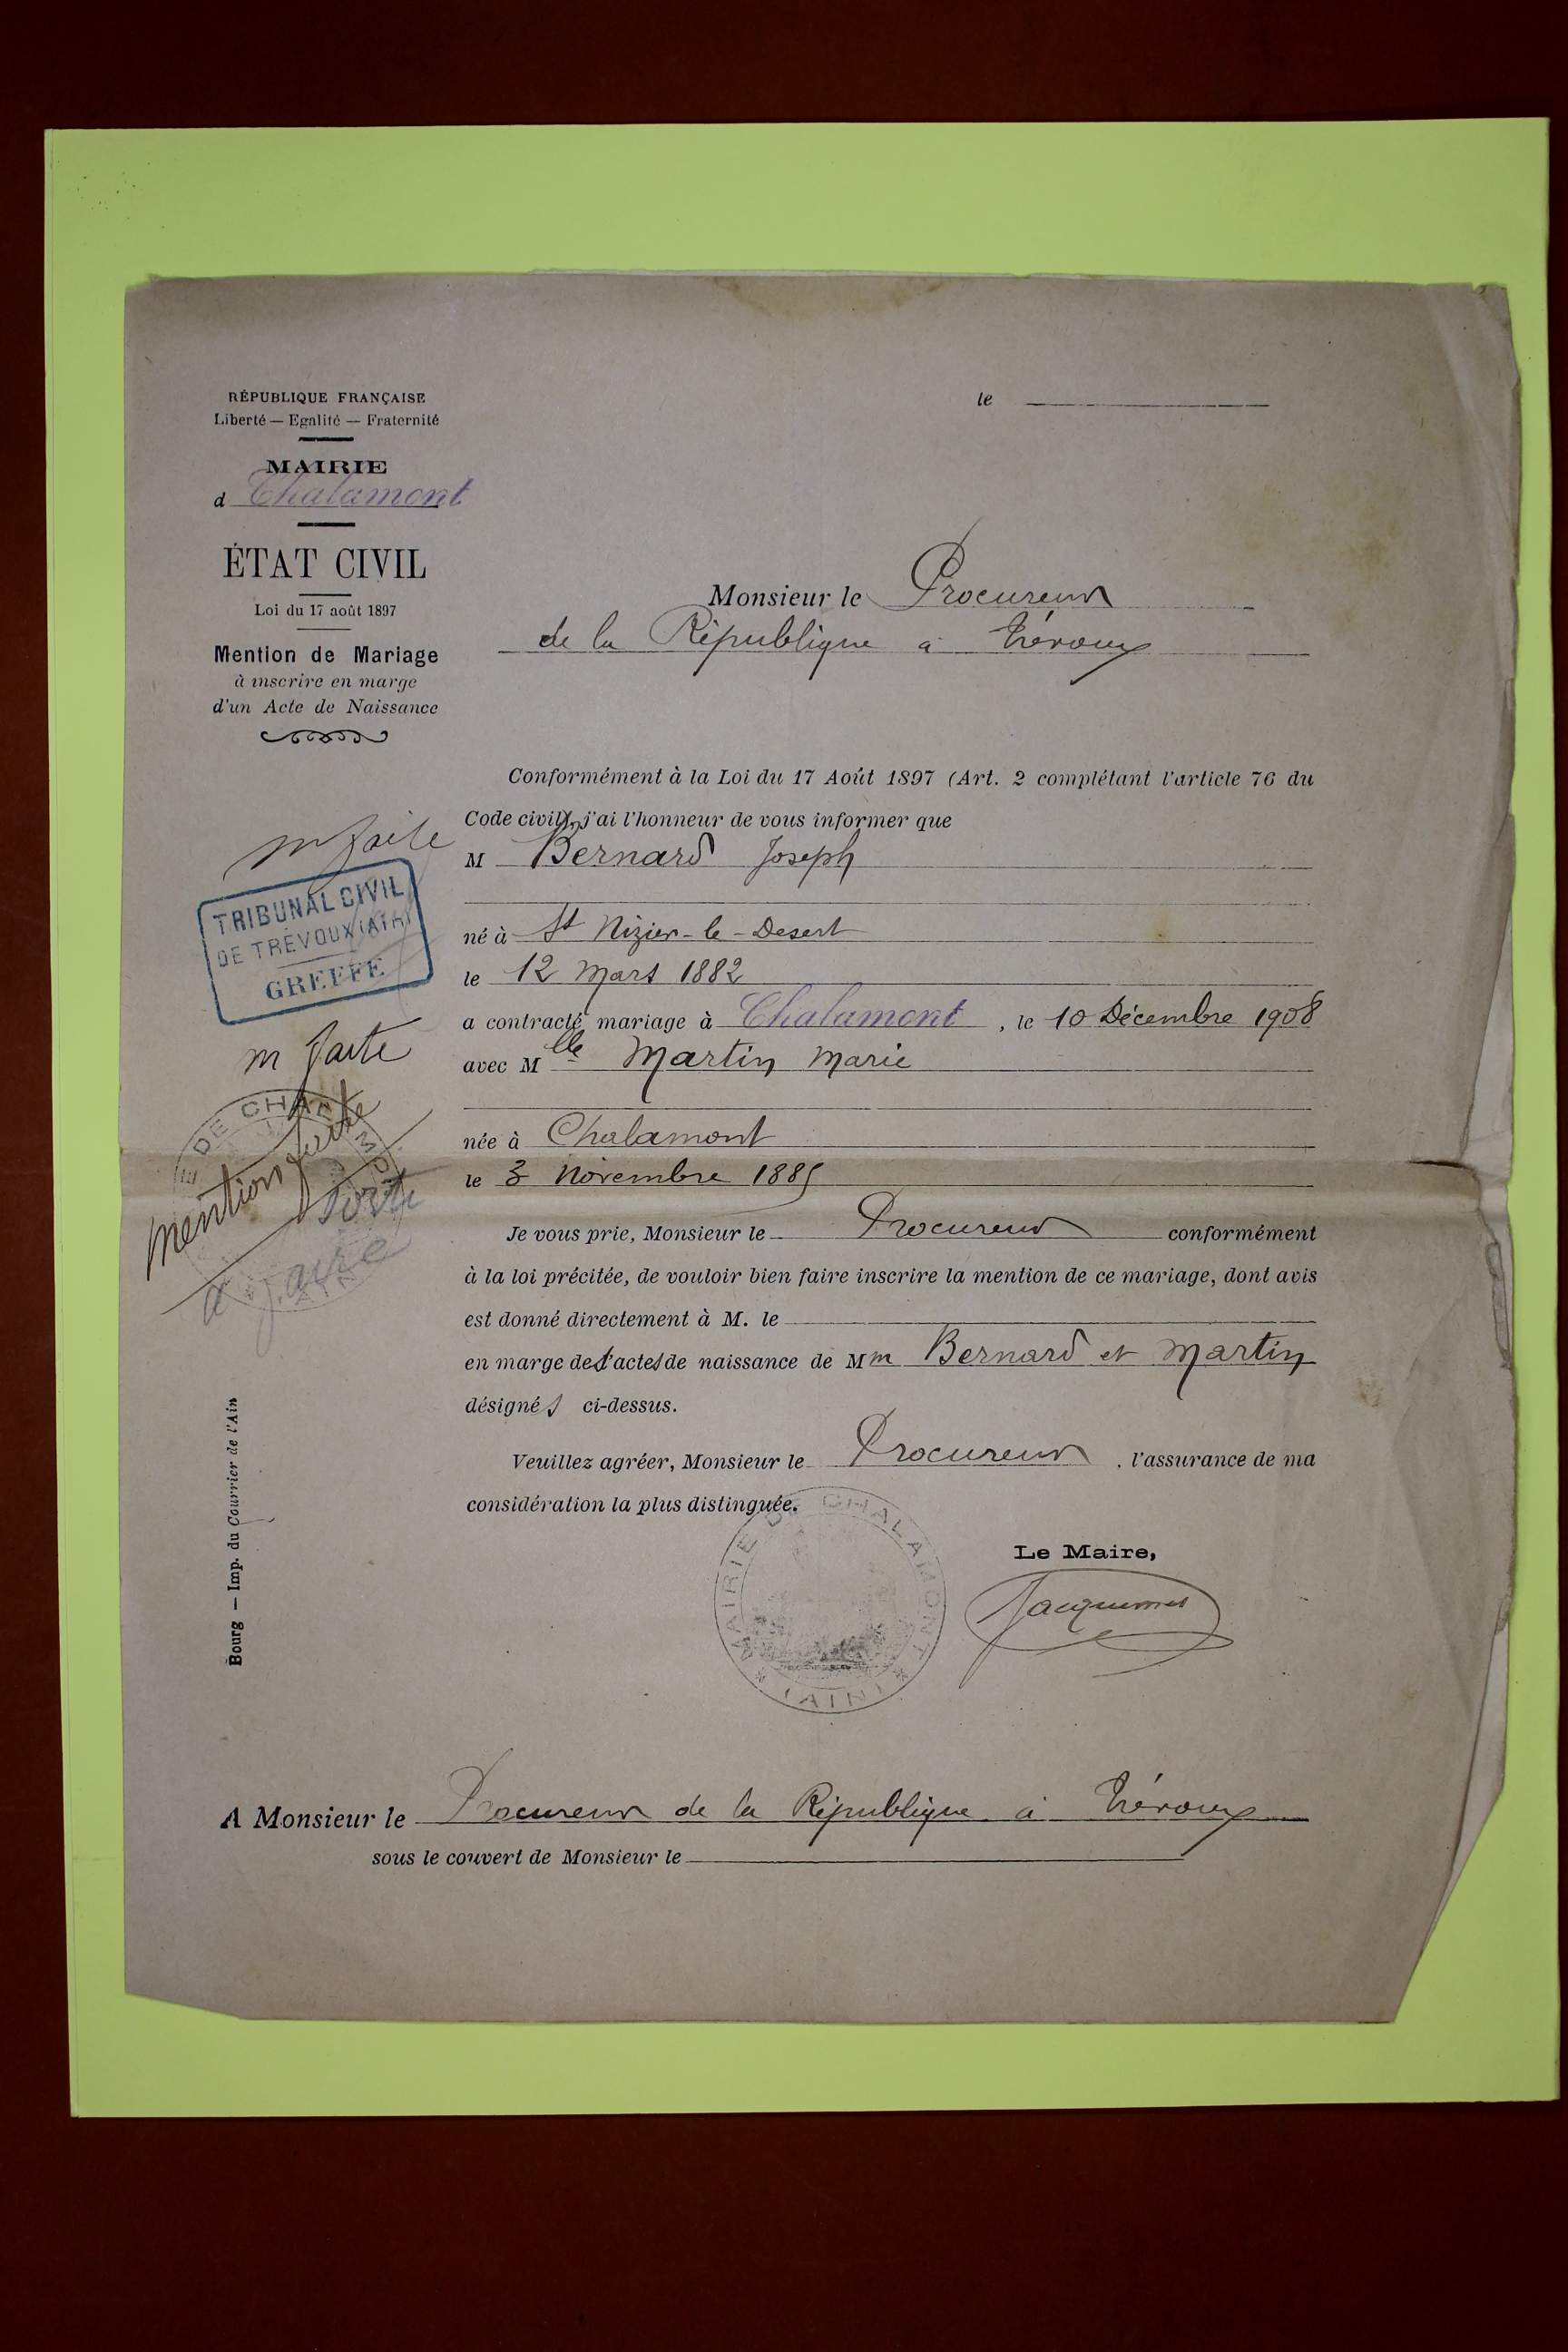 RÉPUBLIQUE FRANÇAISE
Liberté — Egalité — Fraternité
MAIRIE
d Chalamont
ÉTAT CIVIL
Loi du 17 août 1897
Mention de Mariage
à inscrire en marge
d'un Acte de Naissance
le
Monsieur le Procureur
de la République à Trévoux
Conformément à la Loi du 17 Août 1897 (Art. 2 complétant l'article 76 du
Code civil), j'ai l'honneur de vous informer que
M Bernard Joseph
né à St Nizier-le-Desert
le 12 Mars 1882
a contracté mariage à Chalamont, le 10 Décembre 1908
avec Mlle Martin Marie
née à Chalamont
le 3 Novembre 1885
Je vous prie, Monsieur le Procureur conformément
à la loi précitée, de vouloir bien faire inscrire la mention de ce mariage, dont avis
est donné directement à M. le
en marge des actes de naissance de Mm Bernard et Martin
désignés ci-dessus.
Veuillez agréer, Monsieur le Procureur, l'assurance de ma
considération la plus distinguée.
Le Maire,
MAIRIE DE CHALAMONT
(AIN)
A Monsieur le Procureur de la République à Trévoux
sous le couvert de Monsieur le
m faite
TRIBUNAL CIVIL
DE TRÉVOUX (AIN)
GREFFE
m faite
mention faite
à faire
Bourg — Imp. du Courrier de l'Ain